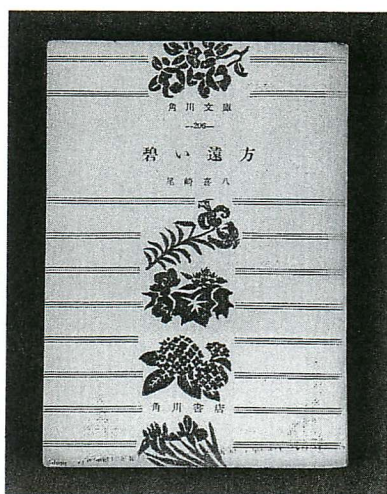 角川文庫
—206—
碧い遠方
尾崎喜八
角川書店